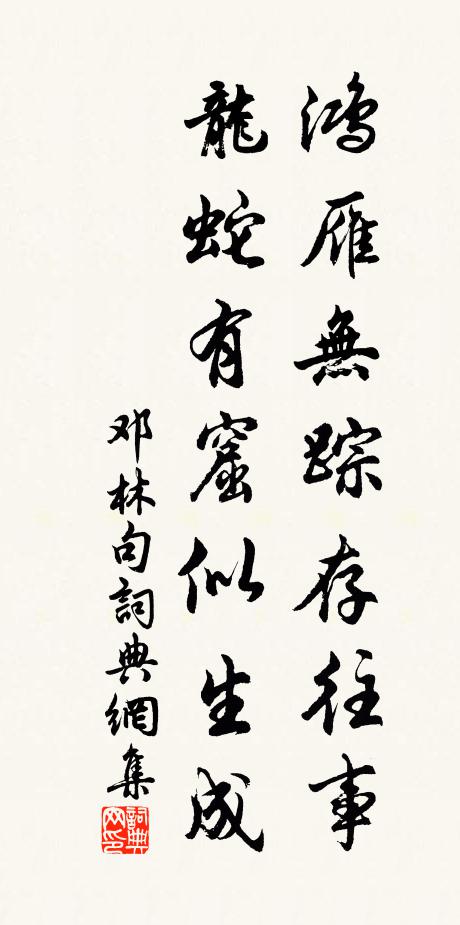 鸿雁無踪存往事
龍蛇有窟似生成
邓林句詞典網集
詞典網印